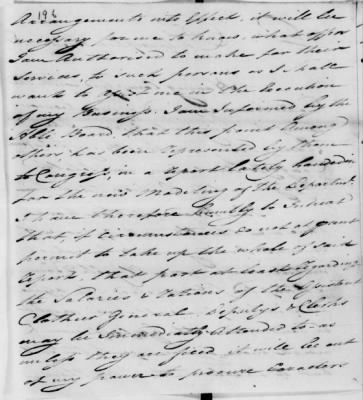 194
Arrangements into Effect, it will be
necessary for me to know, what offer
I am Authorised to make for their
Services, to such persons as I shall
want to in the Execution
of my Business. I am Informed by the
Hble. Board, that this point among
others has been represented by them
to Congress, in a report lately handed in
for the new Modeling of the Departmt.
I have therefore humbly to Intreat
that, if Circumstances do not at present
permit to take up the whole of said
report, that part at least regarding
the Salaries & rations of the
Clothier General. Deputys & Clerks
may be Immediately Attended to - as
unless they are fixed it will be out
of my power to procure Characters